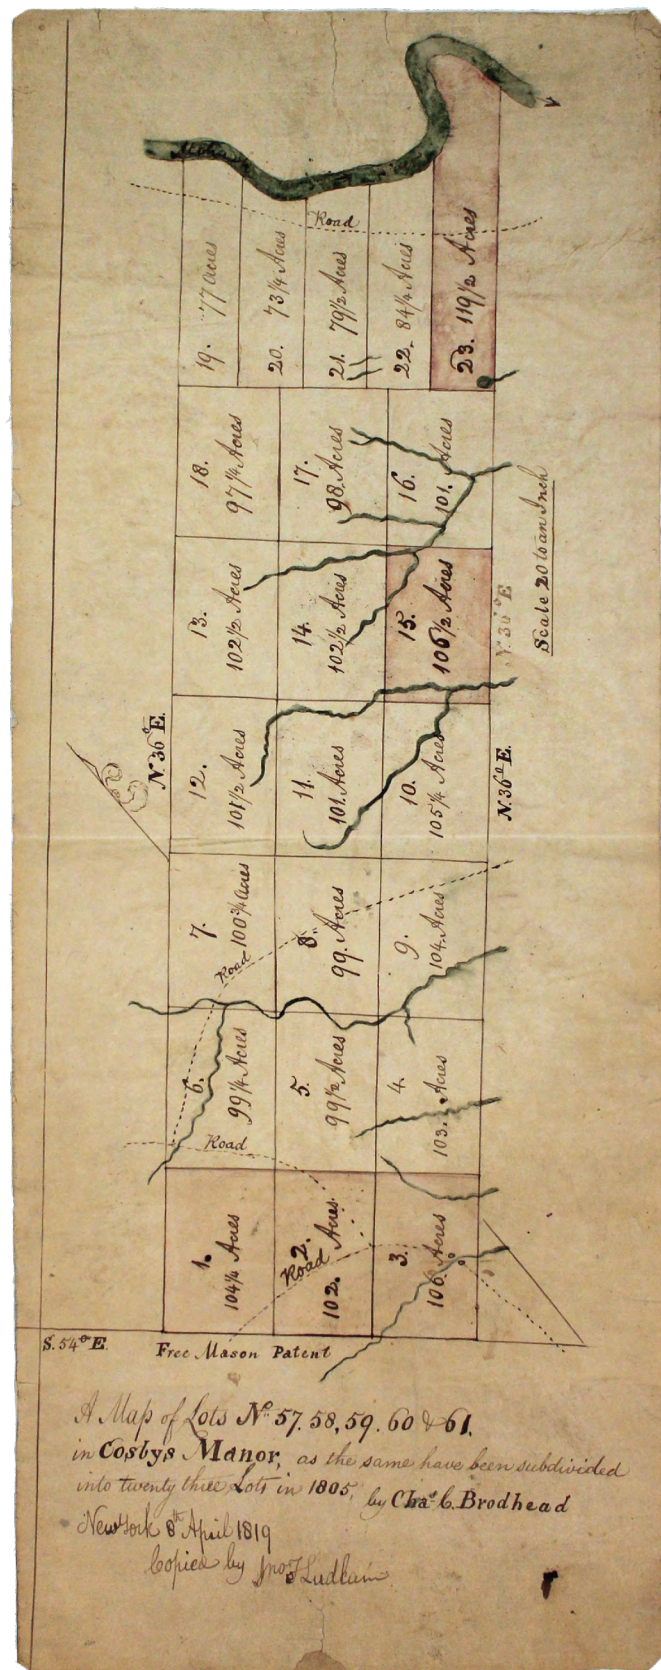 Road
19. 77 Acres
20. 73¼ Acres
21. 79½ Acres
22. 84¼ Acres
23. 119½ Acres
18.
97¼ Acres
17.
98. Acres
16.
101. Acres
13.
102½ Acres
14.
102½ Acres
15.
106½ Acres
N. 36° E
Scale 20 to an Inch
N. 36° E.
12.
101½ Acres
11.
101. Acres
10.
105¼ Acres
N. 36° E.
7.
100¾ Acres
Road
8.
99. Acres
9.
104. Acres
6.
99¼ Acres
5.
99½ Acres
4.
103. Acres
Road
1.
104¼ Acres
2.
Road
102. Acres
3.
106. Acres
S. 54° E.
Free Mason Patent
A Map of Lots No. 57. 58, 59. 60 & 61.
in Cosbys Manor, as the same have been subdivided
into twenty three Lots in 1805, by Chas. C. Brodhead
New York 8th April 1819
Copied by Jno F Ludlam